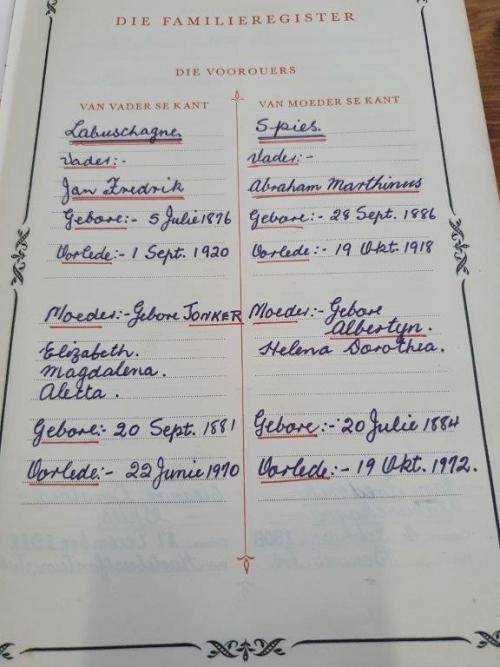 DIE FAMILIEREGISTER
DIE VOOROUERS
VAN VADER SE KANT
Labuschagne.
Vader:-
Jan Fredrik
Gebore:- 5 Julie 1876
Vorlede:- 1 Sept. 1920
Moeder:- Gebore JONKER
Elizabeth.
Magdalena.
Aletta.
Gebore:- 20 Sept. 1881
Vorlede:- 22 Junie 1970
VAN MOEDER SE KANT
Spies.
Vader:-
Abraham Marthinus
Gebore:- 28 Sept. 1886
Vorlede:- 19 Okt. 1918
Moeder:- Gebore
Albertyn.
Helena Dorothea.
Gebore:- 20 Julie 1884
Vorlede:- 19 Okt. 1972.